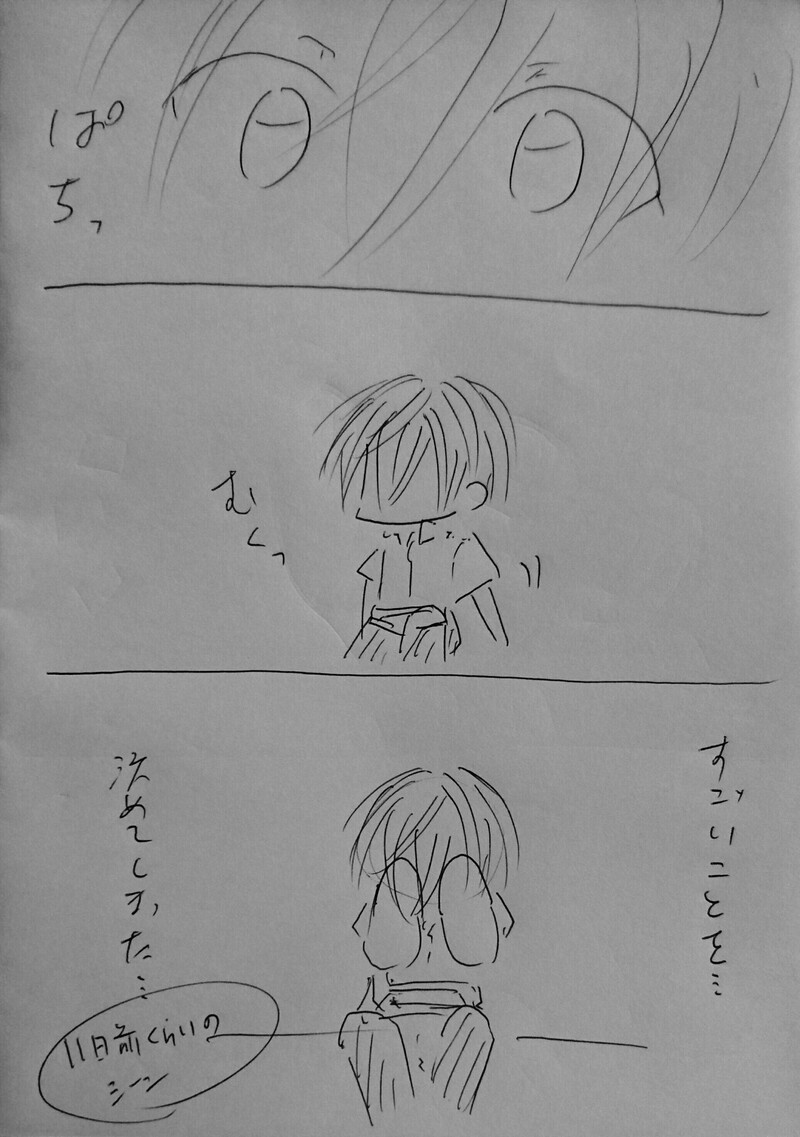 ぱちっ
むくっ
すごいことを…
決めてしまった…
11日前くらいの
シーン